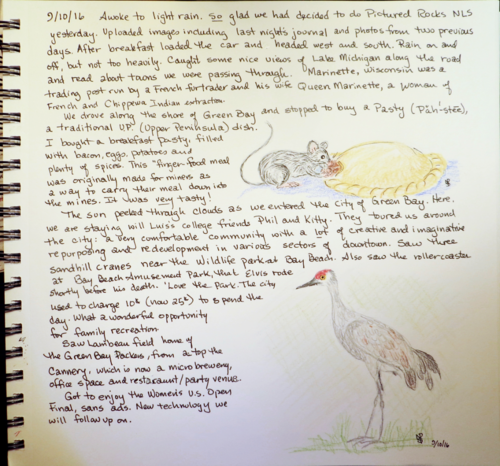 9/10/16 Awoke to light rain. So glad we had decided to do Pictured Rocks NLS
yesterday. Uploaded images including last night's journal and photos from two previous
days. After breakfast loaded the car and headed west and south. Rain on and
off, but not too heavily. Caught some nice views of Lake Michigan along the road
and read about towns we were passing through. Marinette, Wisconsin was a
trading post run by a French fur trader and his wife Queen Marinette, a woman of
French and Chippewa Indian extraction.
We drove along the shore of Green Bay and stopped to buy a Pasty (Păh'-stēē),
a traditional U.P. (Upper Peninsula) dish.
I bought a breakfast pasty, filled
with bacon, eggs, potatoes and
plenty of spices. This "finger-food meal
was originally made for miners as
a way to carry their meal down into
the mines. It was very tasty!
The sun peeked through clouds as we entered the City of Green Bay. Here,
we are staying will Luis's college friends Phil and Kitty. They toured us around
the city: a very comfortable community with a lot of creative and imaginative
repurposing and redevelopment in various sectors of downtown. Saw three
sandhill cranes near the Wildlife park at Bay Beach. Also saw the roller coaster
at Bay Beach Amusement Park, that Elvis rode
shortly before his death. Love the Park. The city
used to charge 10¢ (now 25¢) to spend the
day. What a wonderful opportunity
for family recreation.
Saw Lambeau field home of
the Green Bay Packers, from a top the
Cannery, which is now a microbrewery,
office space and restaurant/party venue.
Got to enjoy the Women's U.S. Open
Final, sans ads. New technology we
will follow up on.
9/10/16